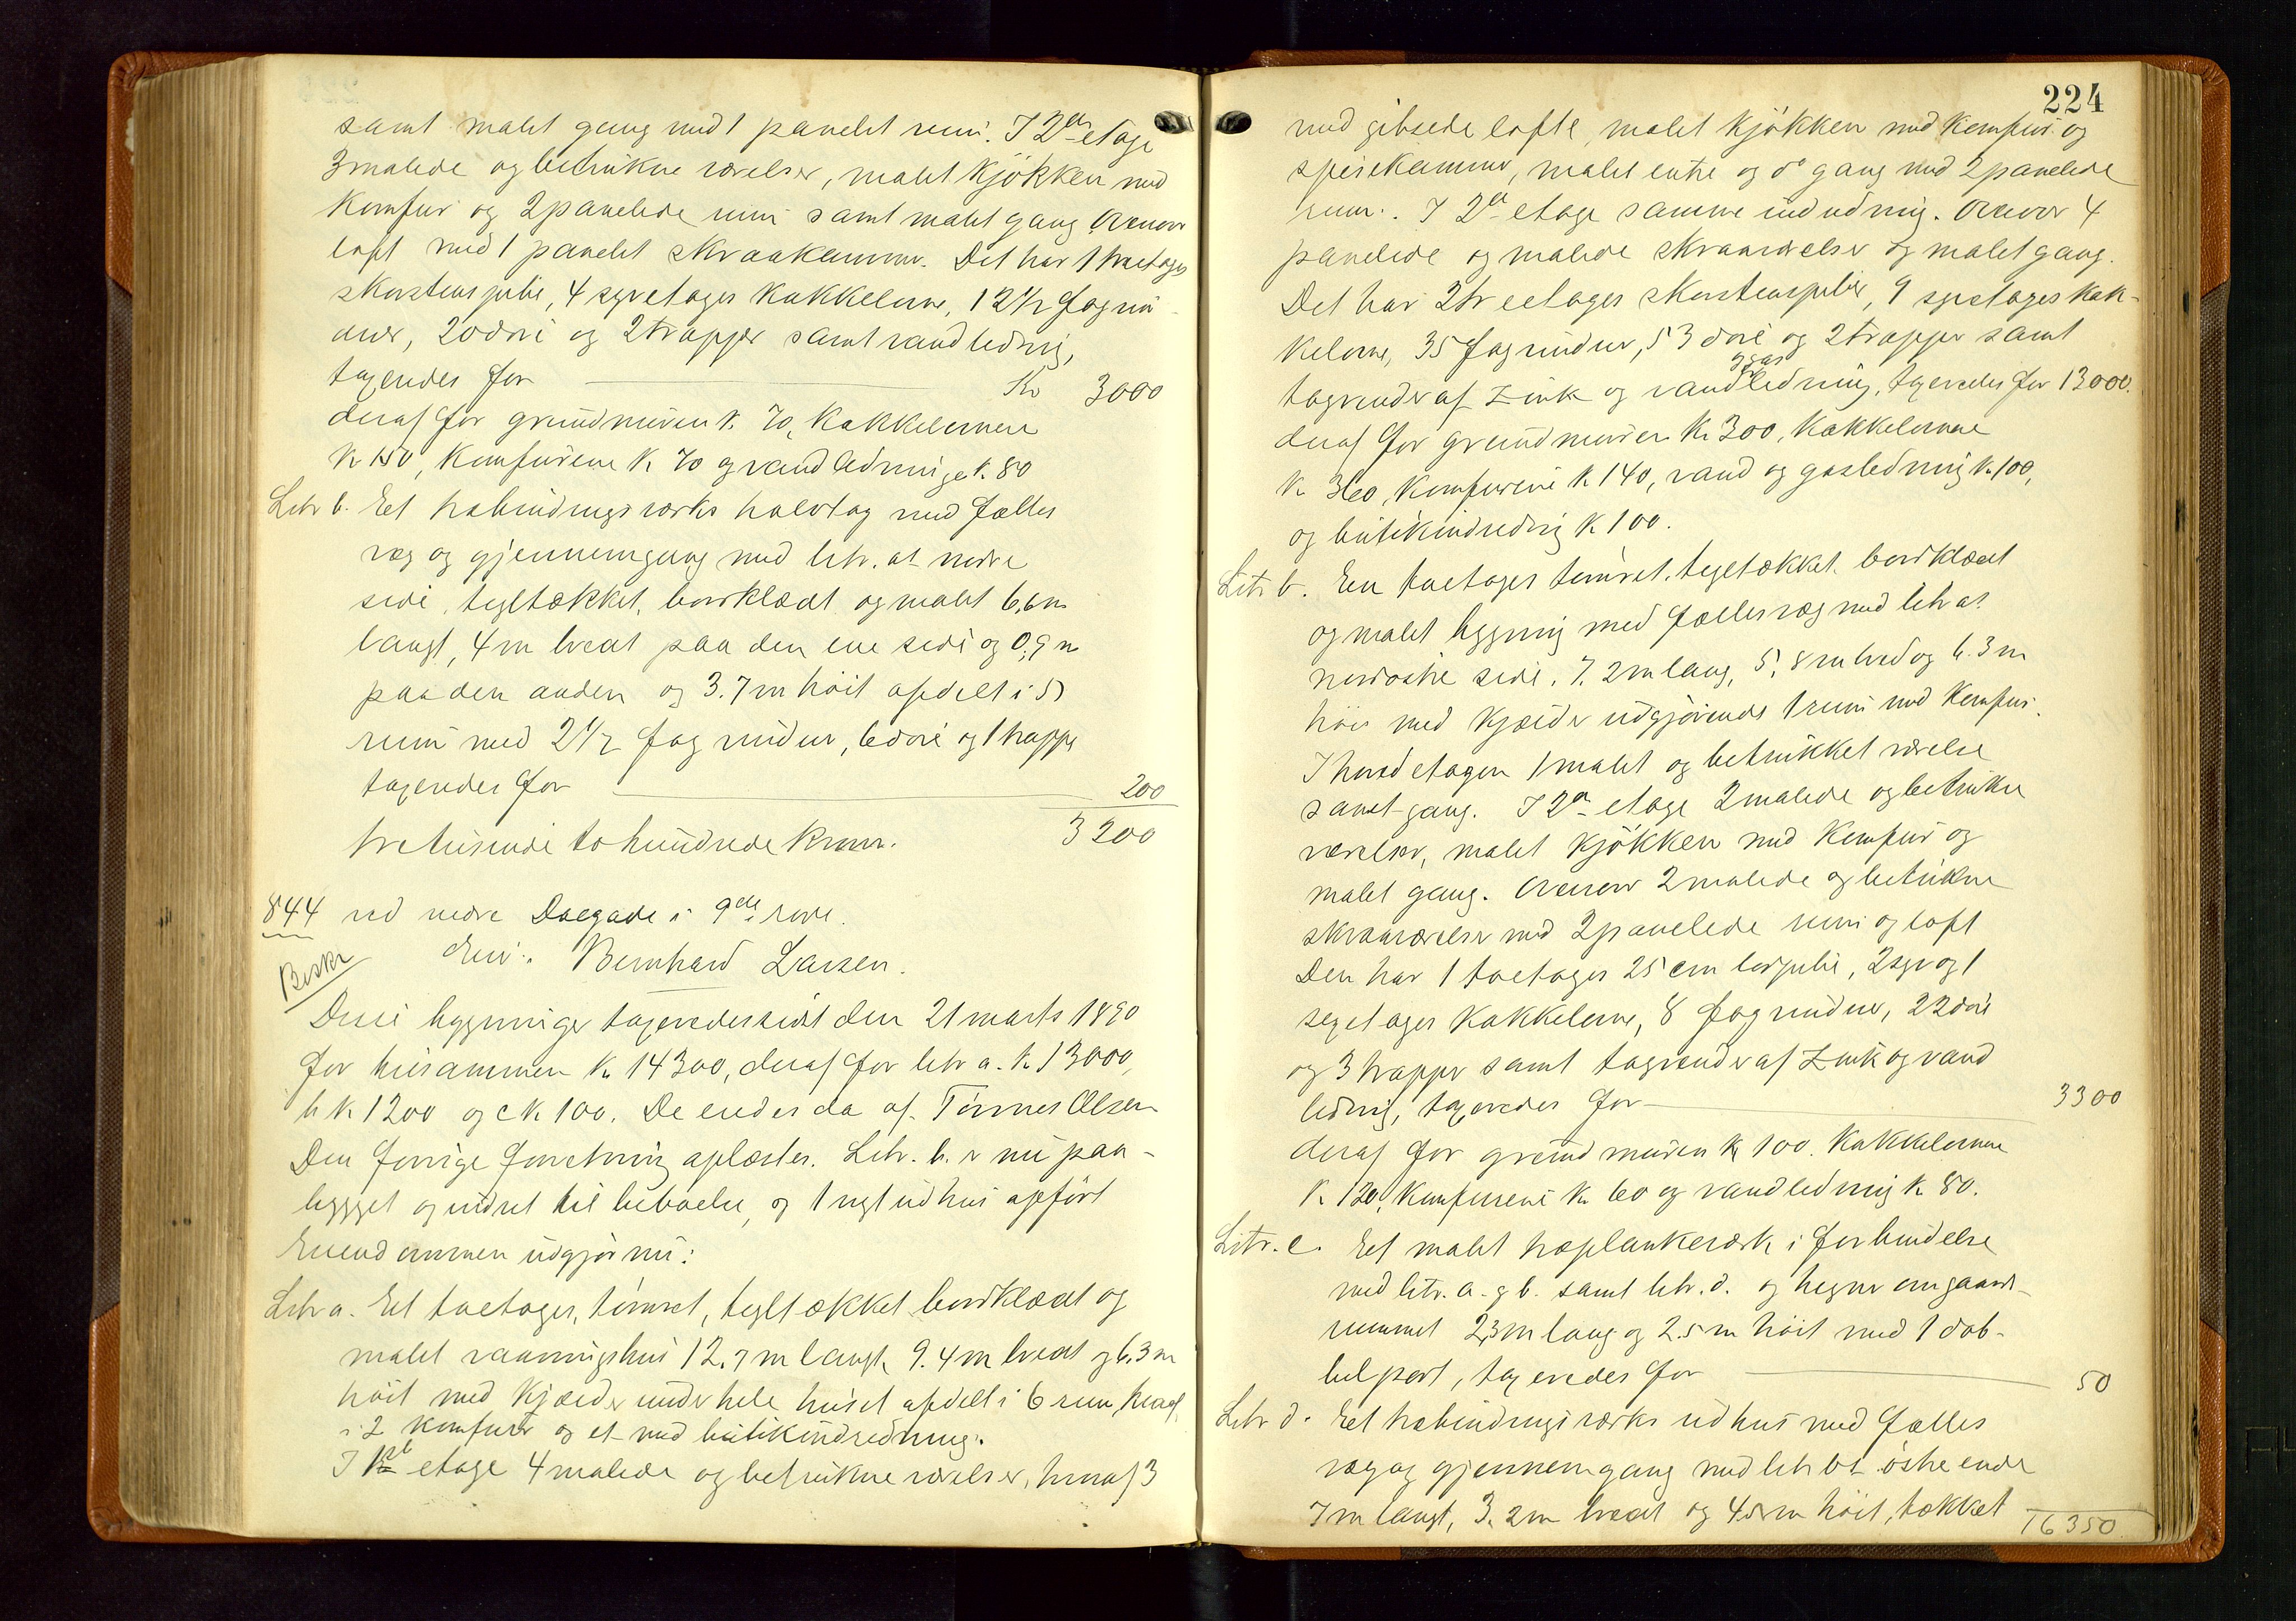 samt malet gang med 1 panelet rum. I 2den etage
3 malede og betrukne værelser, malet kjøkken med
komfur og 2 panelede rum samt malet gang Ovenover
loft med 1 panelet skraakammer. Det har 1 treetages
skorstenspibe, 4 syvetages kakkelovne, 12 1/2 fag vin-
duer, 20 døre og 2 trapper samt vandledning,
taxeredes for Kr 3000
deraf for grundmuren K. 70, kakkelovnene
K 150, komfurene K 70 og vandledningen K. 80
Litr b. Et trebindingsværks halvtag med fælles
væg og gjennemgang med litr. as nedre
side, tegltækket, bordklædt og malet 6,6 m
langt, 4 m bredt paa den ene side og 0,9 m
paa den anden og 3.7 m høit afdelt i 5
rum med 2 1/2 fag vinduer, 6 døre og 1 trappe
taxeredes for 200
tretusinde to hundrede kroner. 3200
844 ved nedre Dalgade i 9de rode.
Beskr Eier: Bernhard Larsen.
Disse bygninger taxeredes sidst den 21 marts 1890
for tilsammen Kr 14300, deraf for litr a. K. 13000,
b K 1200 og c K 100. De eiedes da af Tønnes Olsen
Den forrige forretning oplæstes. Litr. b. er nu paa-
bygget og indret til beboelse, og 1 nyt udhus opført
Eiendommen udgjør nu:
Litr a. Et toetages, tømret, tegltækket bordklædt og
malet vaaningshus 12.7 m langt, 9.4 m bredt og 6,3 m
høit med kjælder under hele huset afdelt i 6 rum, hvoraf
i 2 komfurer og et med butikindredning.
I 1ste etage 4 malede og betrukne værelser, hvoraf 3
224
med gibsede lofte, malet kjøkken med komfur og
spisekammer, malet entre og do gang med 2 panelede
rum. I 2den etage samme indredning. Ovenover 4
panelede og malede skraaværelser og malet gang.
Det har 2 treetages skorstenspiber, 9 syvetages kak-
kelovne, 35 fag vinduer, 53 døre og 2 trapper samt
tagrender af zink og vand og gasledning, taxeredes for 13000.
deraf for grundmuren Kr 300, kakkelovnene
K 360, komfurene K 140, vand og gasledning K. 100,
og butikindredning K 100.
Litr b. En toetages tømret, tegltækket bordklædt
og malet bygning med fælles væg med litr as
nordostre side, 7.2 m lang, 5,8 m bred og 6.3 m
høi med kjælder udgjørende 1 rum med komfur.
I hovedetagen 1 malet og betrukket værelse
samt gang. I 2den etage 2 malede og betrukne
værelser, malet kjøkken med komfur og
malet gang. Ovenover 2 malede og betrukne
skraaværelser med 2 panelede rum og loft
Den har 1 toetages 25 cm lerpibe, 2 syv og 1
sexetages kakkelovne, 8 fag vinduer, 22 døre
og 3 trapper samt tagrender af zink og vand
ledning, taxeredes for 3300
deraf for grundmuren K 100. Kakkelovnene
K 120, komfurene K 60 og vandledning K 80.
Litr. c. Et malet træplankeværk i forbindelse
med litr. a. og b. samt litr. d. og hegner om gaards-
rummet 2,3 m lang og 2.5 m høit med 1 dob-
belport, taxeredes for 50
Litr d. Et trebindingsværks udhus med fælles
væg og gjennemgang med litr bs østre ende
7 m langt, 3.2 m bredt og 4.5 m høit, tækket
16350